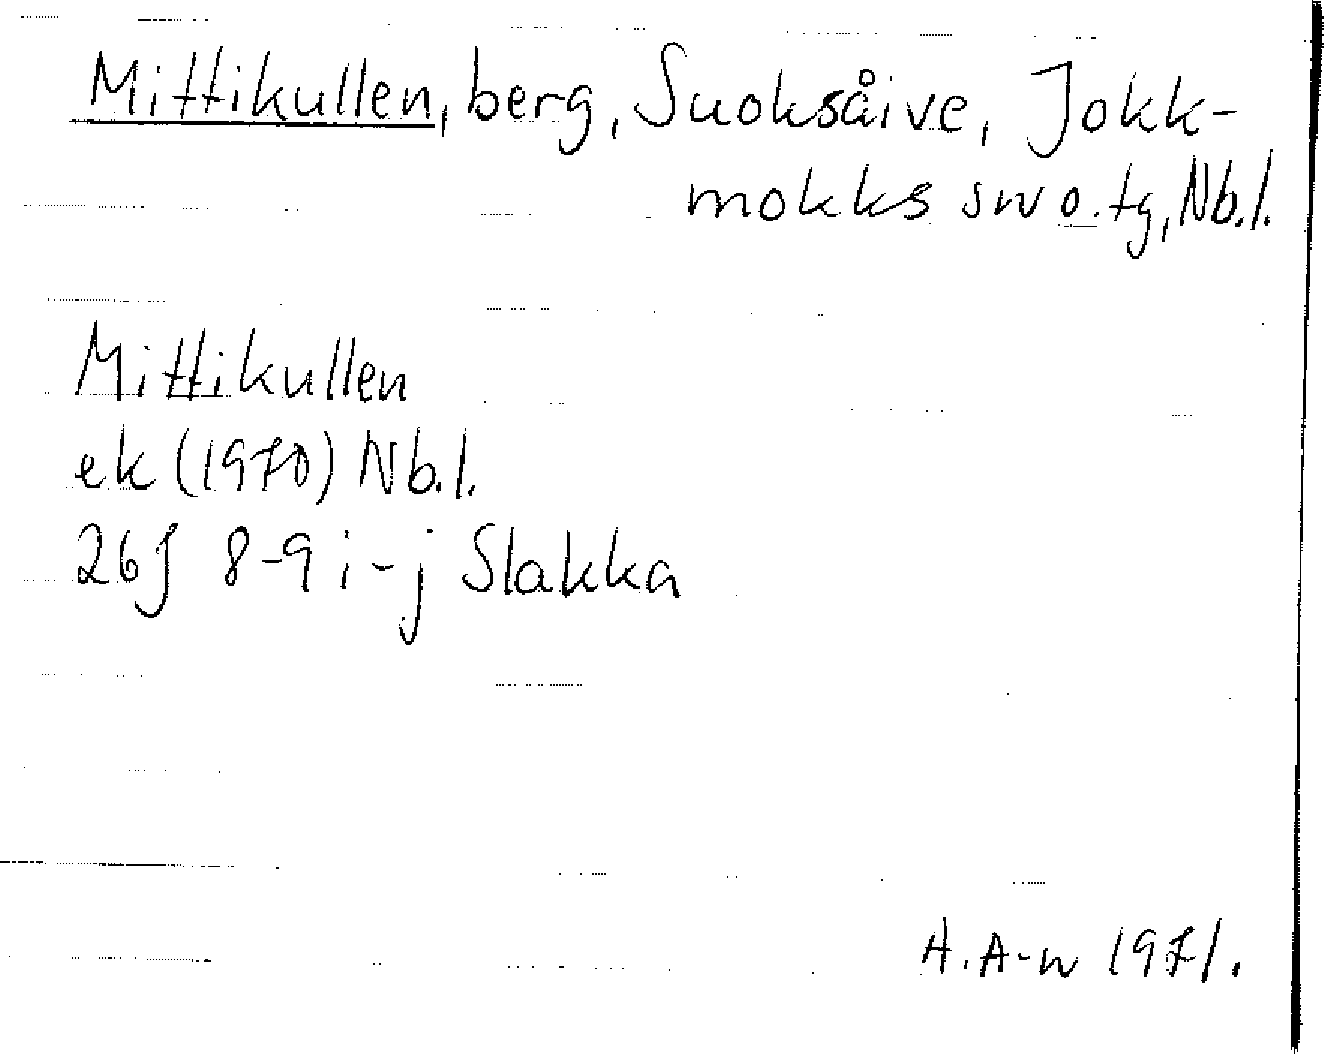 Mittikullen, berg, Suoksåive, Jokk-
mokks sn o. tg, Nb.l.
Mittikullen
ek (1970) Nb.l.
26J 8-9 i-j Slakka
A. A-n 1971.